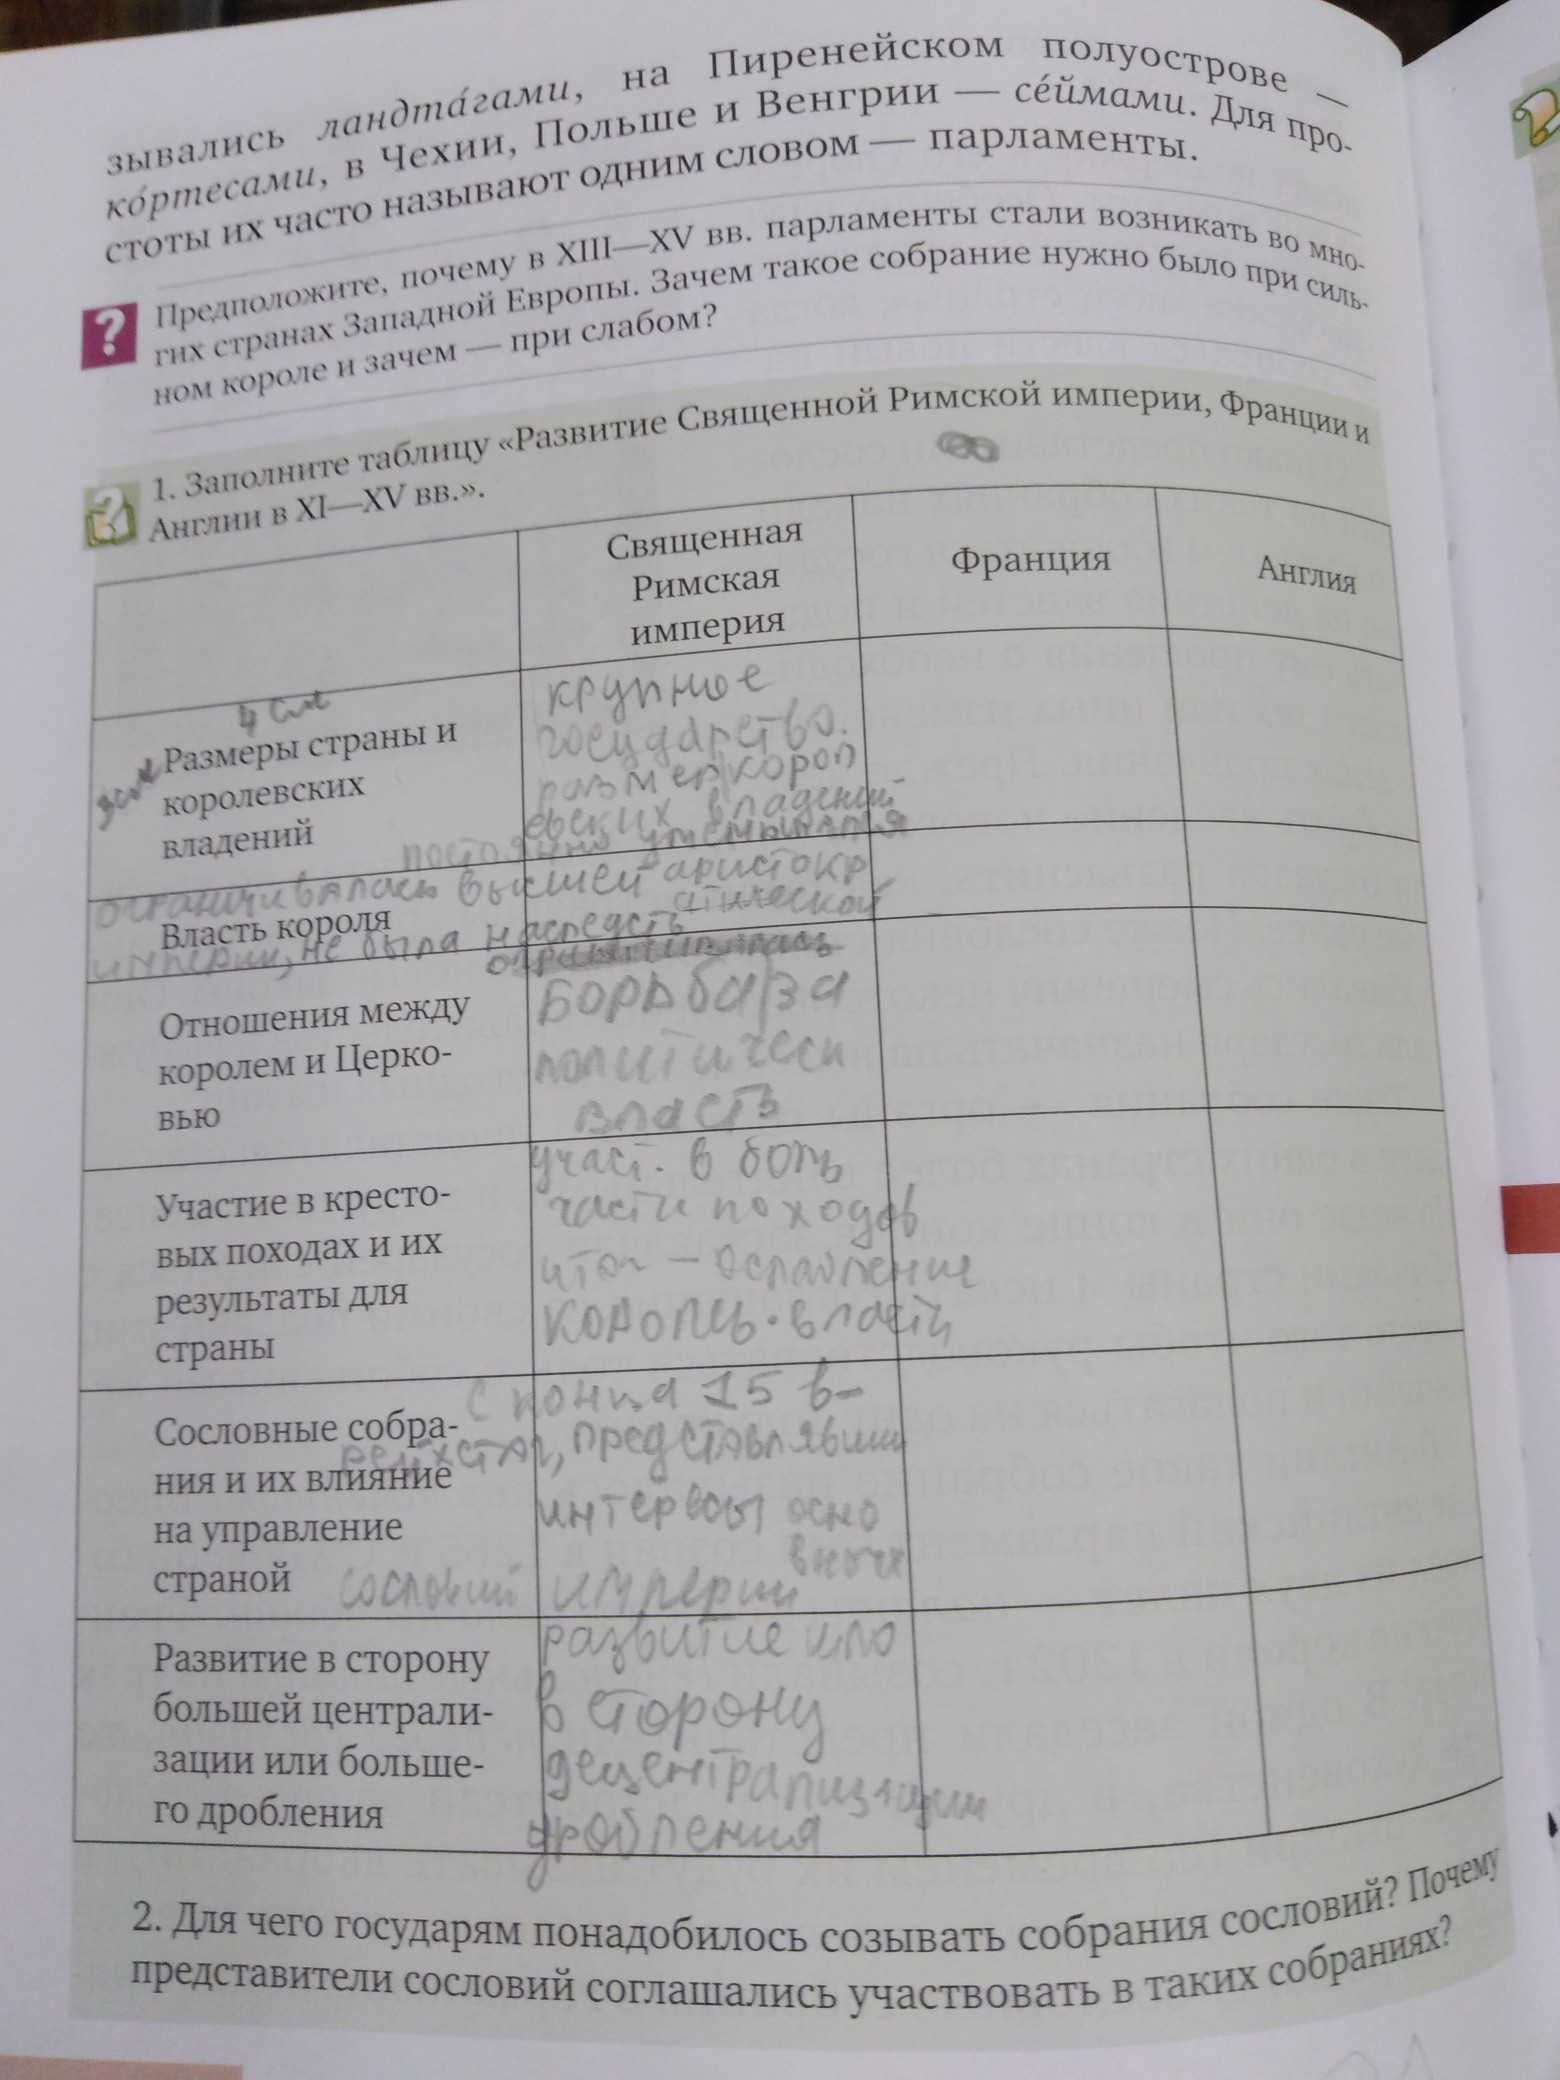 зывались ландта́гами, на Пиренейском полуострове —
ко́ртесами, в Чехии, Польше и Венгрии — се́ймами. Для про-
стоты их часто называют одним словом — парламенты.
? Предположите, почему в XIII—XV вв. парламенты стали возникать во мно-
гих странах Западной Европы. Зачем такое собрание нужно было при силь-
ном короле и зачем — при слабом?
1. Заполните таблицу «Развитие Священной Римской империи, Франции и
Англии в XI—XV вв.».
Священная
Римская
империя
Франция
Англия
4 см
Размеры страны и
королевских
владений
крупное
государство.
размер корол
евских владений
постоянно уменьшался
Власть короля
ограничивалась высшей аристокр
атической
империи, не была наследств
Отношения между
королем и Церко-
вью
БОРЬБА за
политическ
власть
Участие в кресто-
вых походах и их
результаты для
страны
участ. в боль
части походов
итог — ослабление
королев. власти
Сословные собра-
ния и их влияние
на управление
страной
с конца 15 в-
рейхстаг, представлявший
интересы осно
вных
сословий империи
Развитие в сторону
большей централи-
зации или больше-
го дробления
развитие шло
в сторону
децентрализации
дробления
2. Для чего государям понадобилось созывать собрания сословий? Почему
представители сословий соглашались участвовать в таких собраниях?